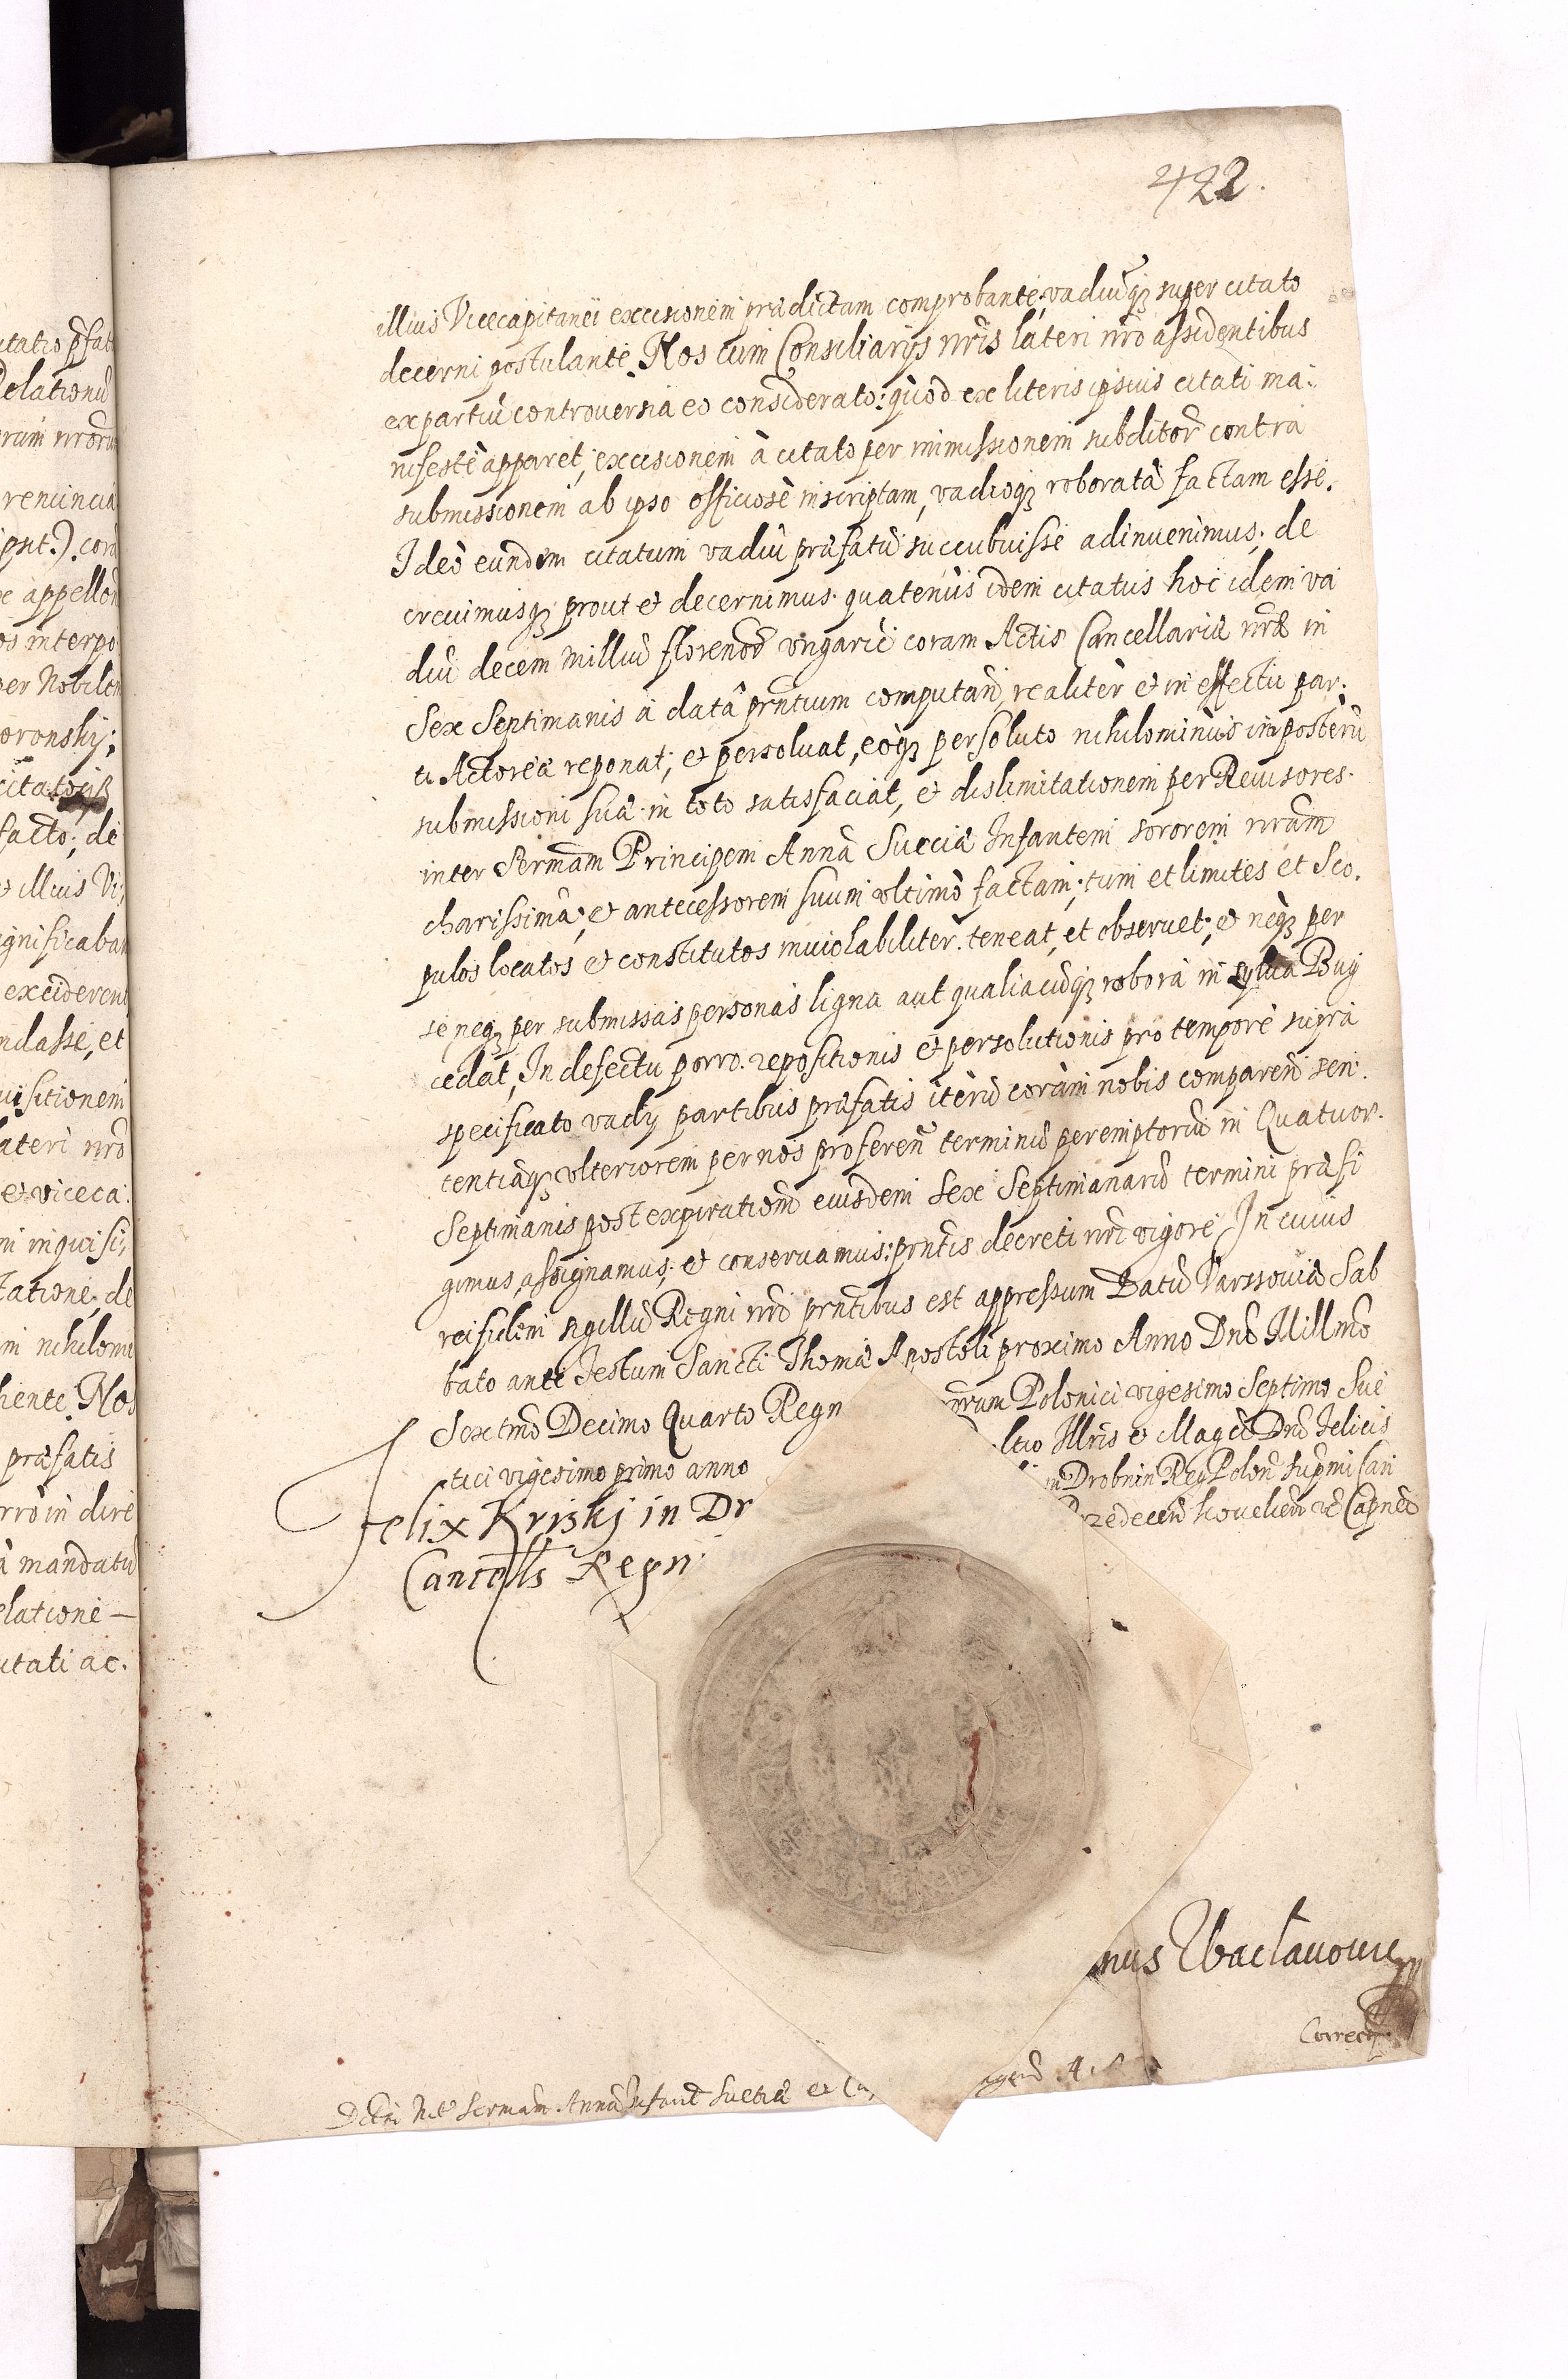 422.
illius Vicecapitanei excisionem prædictam comprobante, vadiũqꝫ super citato
decerni postulante. Nos cum Consiliarijs nr̃is lateri nr̃o assidentibus
ex partiũ controuersia eo considerato: quòd ex literis ipsius citati ma:
nifestè apparet, excisionem à citato per immissionem subditor̃ contra
submissionem ab ipso officiosè inscriptam, vadioqꝫ roboratã factam esse.
Ideò eundem citatum vadiũ præfatũ succubuisse adinuenimus, de
creuimusqꝫ prout et decernimus. quatenùs idem citatus hoc idem va
diũ decem milliũ florenor̃ vngaric̃ coram Actis Cancellariæ nr̃æ in
Sex Septimanis à datâ pr̃ntium computand̃ realiter et in effectu par:
ti Actoreæ reponat, et persoluat, eòqꝫ persoluto nihilominùs inposterũ
submissioni suæ in toto satisfaciat, et dislimitationem per Reuisores
inter Serm̃am Principem Annã Sueciæ Infantem sororem nr̃am
charissimã, et antecessorem suum vltimò factam, tum et limites et Sco.
pulos locatos et constitutos inuiolabiliter teneat, et obseruet, et neqꝫ per
se neqꝫ per submissas personas ligna aut qualiacũqꝫ robora in sylua Buy
cedat, In defectu porro repositionis et persolutionis pro tempore supra
specificato vadij partibus præfatis iterũ coram nobis comparend̃ sen.
tentiãqꝫ vlteriorem per nos proferen̄ terminũ peremptoriũ in Quatuor.
Septimanis post expirationem eiusdem Sex Septimanarũ termini præfi
gimus, assignamus, et conseruamus: pr̃ntis decreti nr̃i vigore. In cuius
rei fidem sigillũ Regni nr̃i pr̃ntibus est appressum Datũ Varssouiæ Sab
bato ante Festum Sancti Thomæ Apostoli proximo Anno Dn̄i Millm̃o
Sexctm̃o Decimo Quarto Regn nr̃rum Polonici vigesimo Septimo Sue
tici vigesimo primo anno ltio Illr̃is et Magcĩ Dn̄i Felicis
in Drobnin Reg̃ Polon̄ Sup̃mi Can
Felix Kriski in Dr
Cancells Regn
nus Wacławowic
Correct
Dctũ Int̃ Serm̃am Annã Infant̃ Suetiæ et Ca